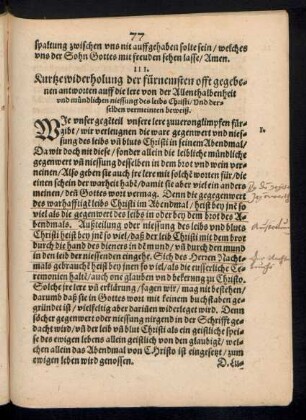 77
spaltung zwischen vns nit auffgehaben solte sein/ welches
vns der Sohn Gottes mit freuden sehen lasse/ Amen.
III.
Kurtze widerholung der fürnemsten offt gegebe-
nen antworten auff die lere von der Allenthalbenheit
vnd mündlichen niessung des leibs Christi/ vnd der-
selben vermeinten beweiß.
1.
Wie vnser gegenteil vnsere lere zuuerunglimpfen für-
gibt/ wir verleugnen die ware gegenwert vnd nies-
sung des leibs vñ bluts Christi in seinem Abendmal/
Da wit doch nit diese/ sonder allein die leibliche mündliche
gegenwert vñ niessung desselben in dem brot vnd wein ver-
neinen/ Also geben sie auch jre lere mit solchẽ worten für/ die
einen schein der warheit habẽ/ damit sie aber viel ein anders
meinen/ deñ Gottes wort vermag. Denn die gegegenwert
des warhafftigẽ leibs Christi im Abendmal/ heist bey jnẽ so
viel/ als die gegenwert des leibs in oder bey dem brot des A-
bendmals. Außteilung oder niessung des leibs vnd bluts
Christi heist bey jnẽ so viel/ daß der leib Christi mit dem brot
durch die hand des dieners in den mund/ vñ durch den mund
in den leib der niessenden eingehe. Sich des Herren Nacht-
mals gebrauchẽ heist bey jnen so viel/ als die eusserliche Ce-
remonien haltẽ/ auch one glauben vnd bekerung zu Christo.
Solche jre lere vñ erklärung/ sagen wir/ mag nit bestehen/
darumb daß sie in Gottes wort mit keinem buchstaben ge-
gründet ist/ vielteltig aber darinen widerleget wird. Denn
söcher gegenwert oder niessung nirgend in der Schrifft ge-
dacht wird/ vñ der leib vñ blut Christi als ein geistliche spei-
se des ewigen lebens allein geistlich von den glaubigẽ/ wel-
chen allein das Abendmal von CHristo ist eingesetzt/ zum
ewigen leben wird genossen.
D. Lu-